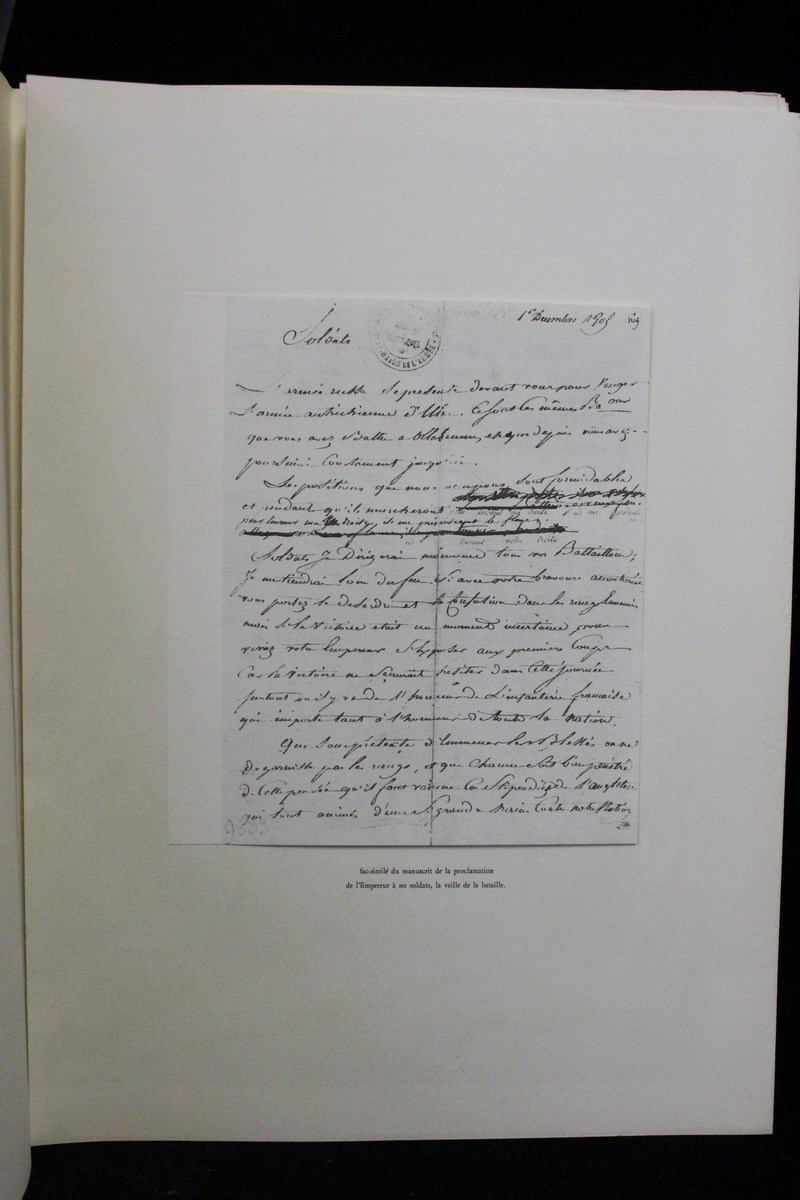 1er Decembre 1805
Soldats
L'armée russe se presente devant vous pour Venger
L'armée autrichienne d'Ulm. Ce sont les mêmes Baons
que vous avez Battu a et que depuis vous avez
poursuivi Constament jusqu'ici.
Les positions que nous occupons sont formidables
et pendant qu'ils marcheront
pour tourner ma droite, ils me presenteront le flanc;
Soldats Je Dirigerai moimeme tous vos Bataillons;
Je me tiendrai loin du feu si avec votre bravoure accoutumée
vous portez le desordre et la Confusion dans les rangs Ennemis
mais Si la Victoire etait un moment incertaine vous
verriez votre Empereur S'Exposer aux premiers Coups
Car la Victoire ne Sçauroit hesiter dans Cette Journée
surtout ou il y va de l'honneur de L'infanterie française
qui importe tant à l'honneur de toute la nation.
Que Sous pretexte d'Emmener les Blessés on ne
Degarnisse pas les rangs, et que Chacun Soit bien pénétré
de Cette pensée qu'il faut vaincre Ces Stipendiés de l'angleterre
qui sont animés d'une Si grande haine Contre notre Nation
BIBLIOTHEQUE DE L'ARMÉE
fac-similé du manuscrit de la proclamation
de l'Empereur à ses soldats, la veille de la bataille.